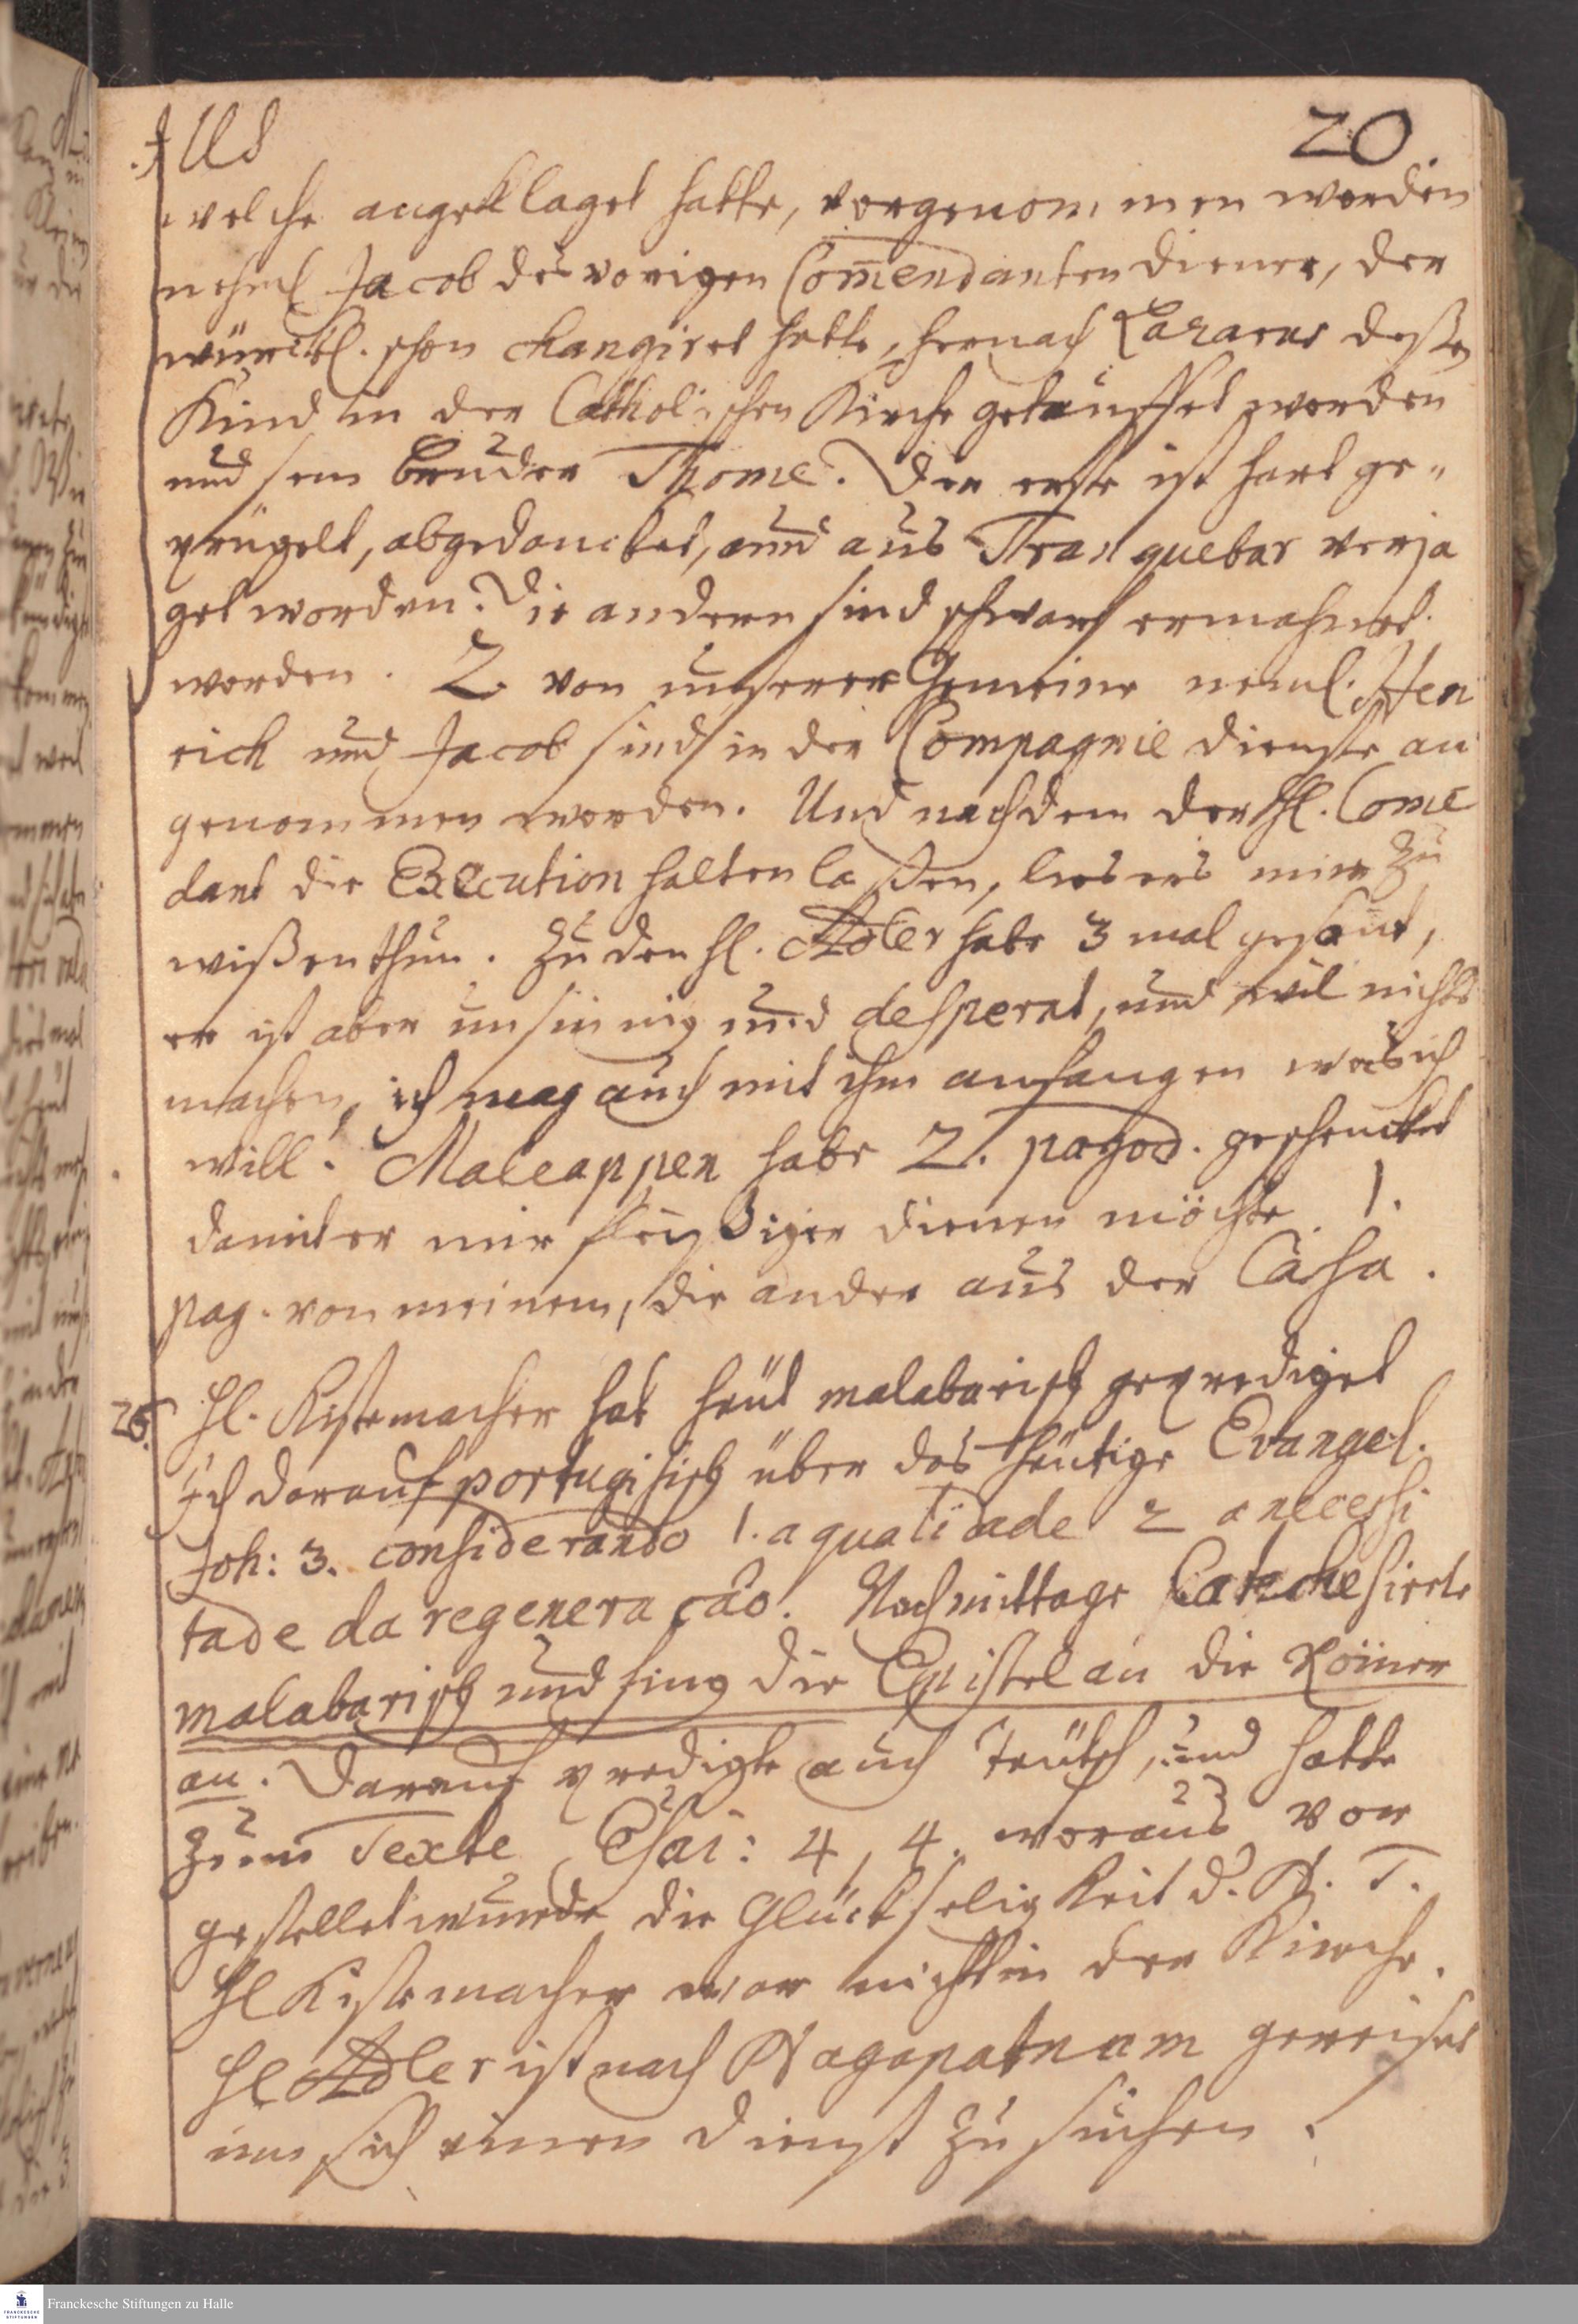 20
welche angeklaget hatte, vorgenommen worden
nehml Jacob des vorigen Com̅endanten diener, der
würckl. schon changiret hatte, hernach Lazarus deßen
Kind in der Catholischen Kirche getauffet worden
und sein bruder Thome. Der erste ist hart ge-
prügelt, abgedancket, und aus Tranquebar verja
get worden. Die andern sind scharf ermahnet
worden. 2. von unserer Gemeine neml. Hen
rich und Jacob sind in der Compagnie dienste an
genommen worden. Und nachdem der H. Come
dant die Execution halten laßen, lies ers mir zu
wißen thun. Zu den H. Adler habe 3 mal gesant,
er ist aber unsinnig und desperat, und wil nichts
machen, ich mag auch mit ihm anfangen was ich
will. Maleappen habe 2. pagod. geschencket
damit er mir fleißiger dienen möchte. 1.
pag. von meinem, die ander aus der Cassa.
26. H. Kistemacher hat heut malabarisch geprediget
Ich darauf portugisisch über das heutige Evangel.
Joh: 3. considerando 1. a qualidade 2 a necessi
tade da regeneração. Nachmittage Catechesirete
malabarisch und fing die Epistel an die Römer
an. Darauf predigte auch Teütsch, und hatte
zum Texte Esai: 4, 4. woraus vor
gestellet wurde die Glückseligkeit d. N. T.
H Kistemacher war nicht in der Kirche.
H Adler ist nach Nagapatnam gereiset
um sich einen dienst zu suchen.
Franckesche Stiftungen zu Halle